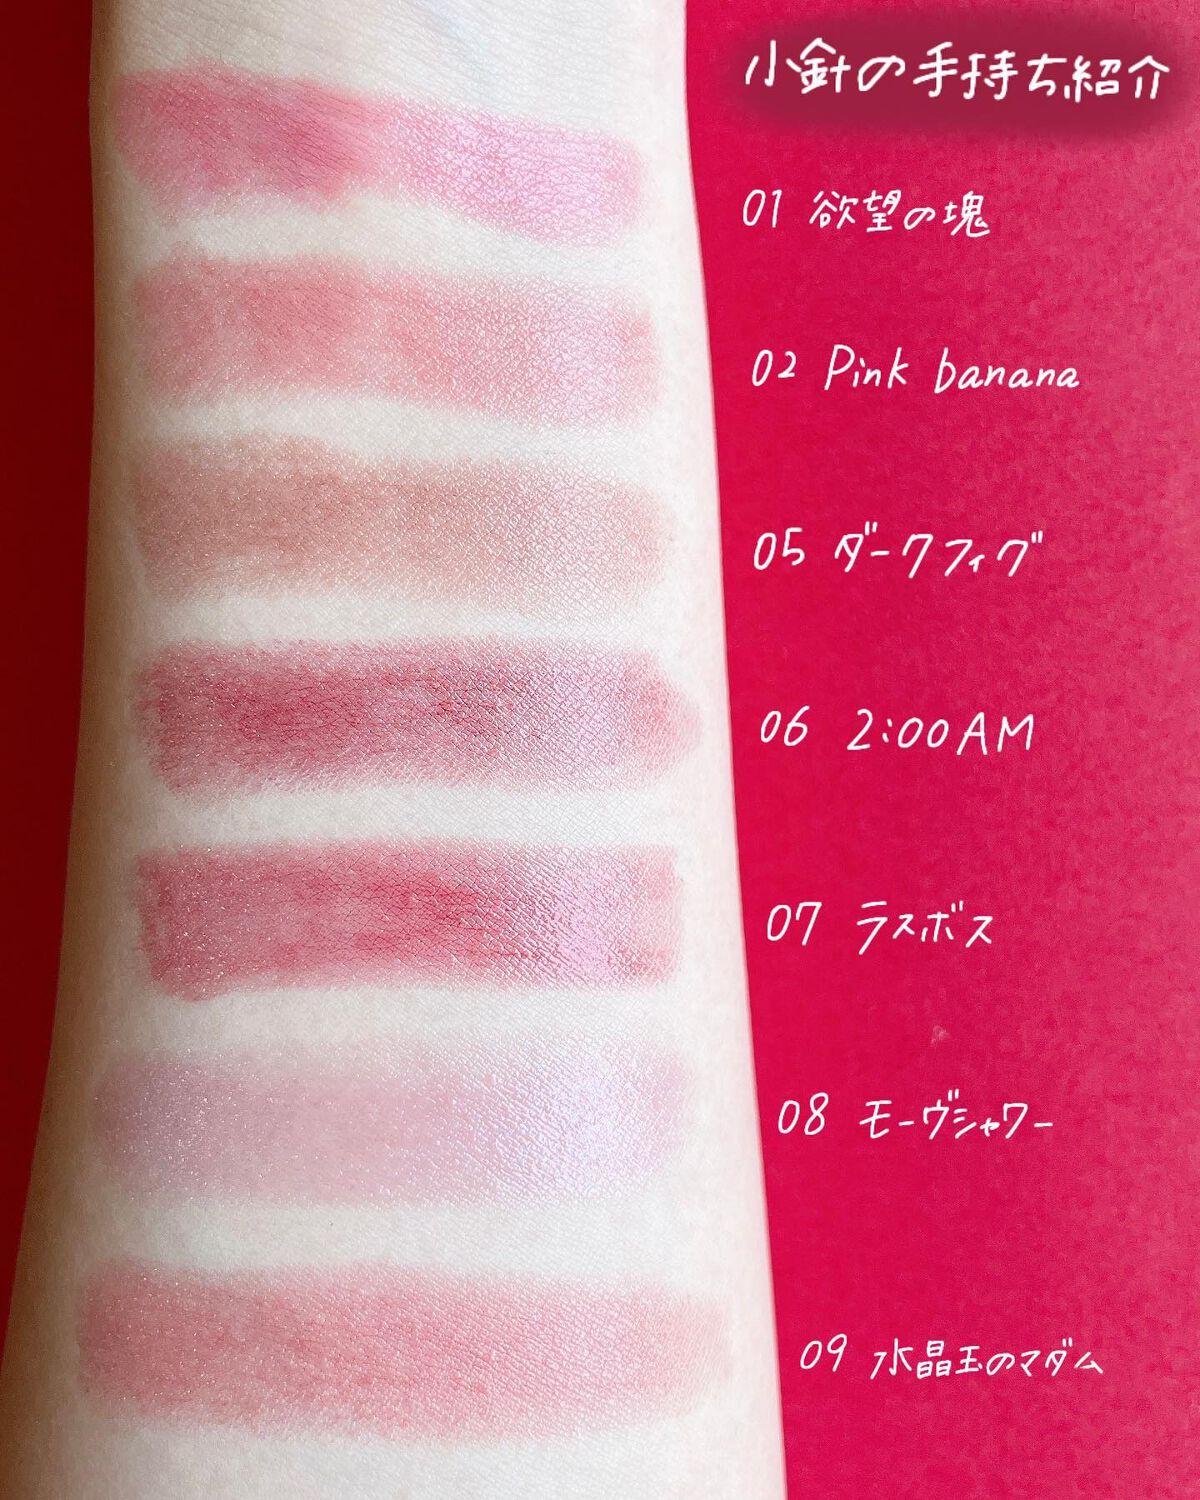 小針の手持ち紹介
01 欲望の塊
02 Pink banana
05 ダークフィグ
06 2:00AM
07 ラスボス
08 モーヴシャワー
09 水晶玉のマダム